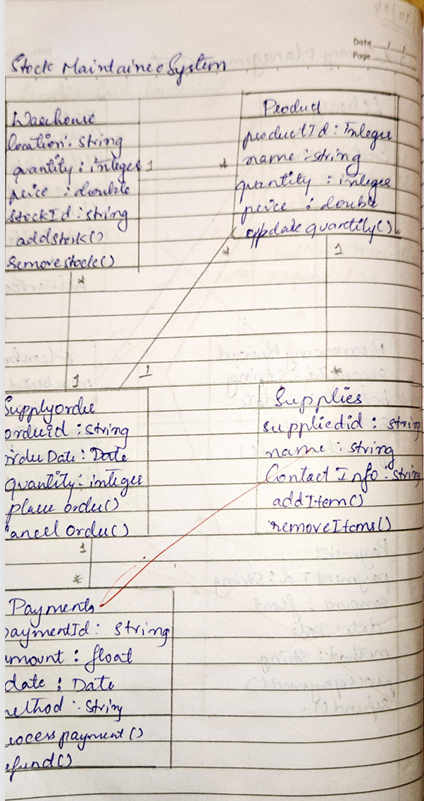 Date
Page
Stock Maintaince System
Warehouse
location: string
quantity: integer
price : double
stockId : string
addstock()
removestock()
1
*
Product
productId : Integer
name : string
quantity : integer
price : double
update quantity()
*
1
*
1
1
*
Supplyorder
orderid : string
order Date : Date
quantity : integer
place order()
cancel Order()
Supplies
suppliedid : string
name : string
Contact Info : string
addItem()
removeItems()
1
*
Payments
paymentId : string
amount : float
date : Date
method : String
process payment()
refund()